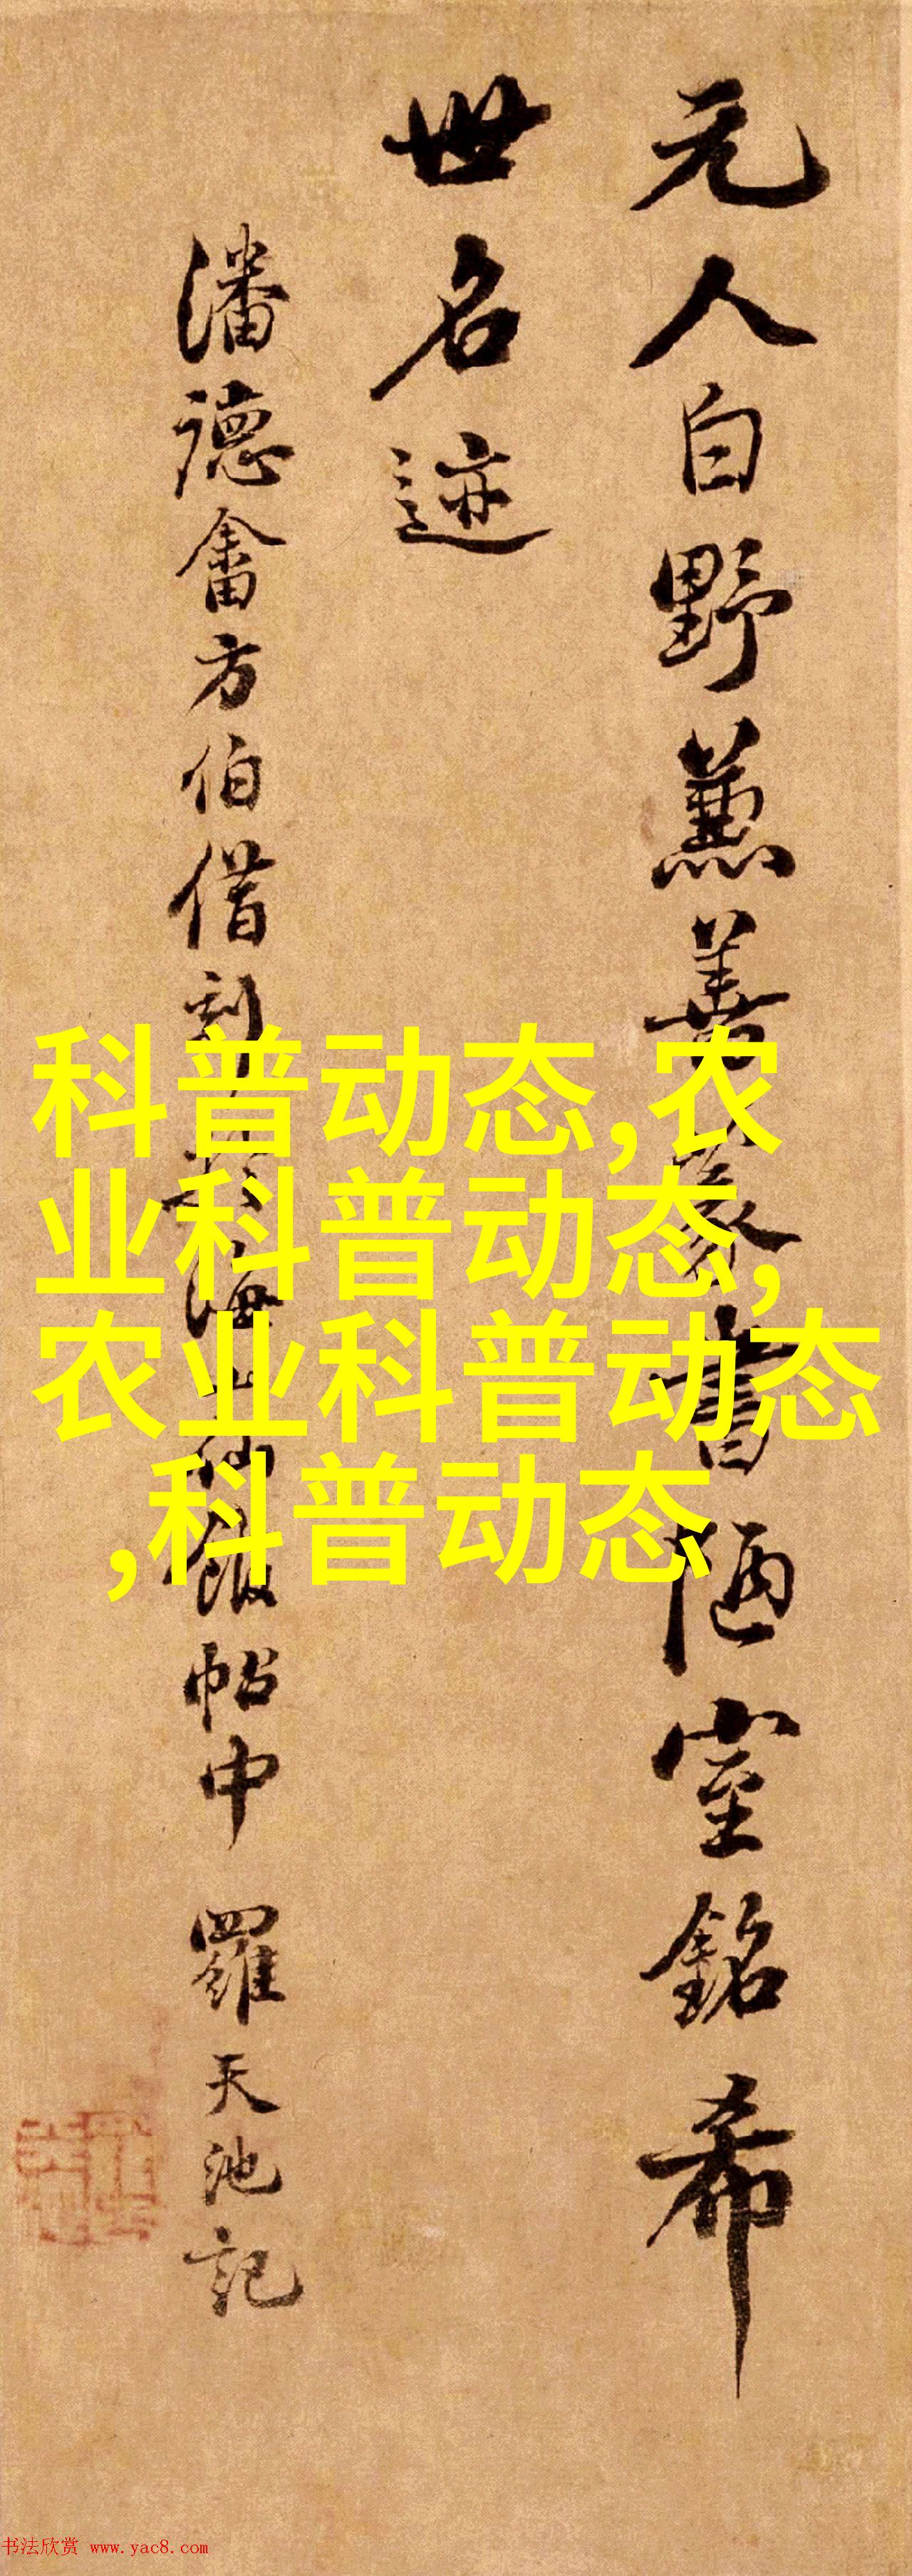 元人白野兼善篆書陋室銘希
世名迹
潘德畬方伯借刻於海山仙館帖中 羅天池記
科普动态,农
业科普动态,
农业科普动态
,科普动态
书法欣赏 www.yac8.com